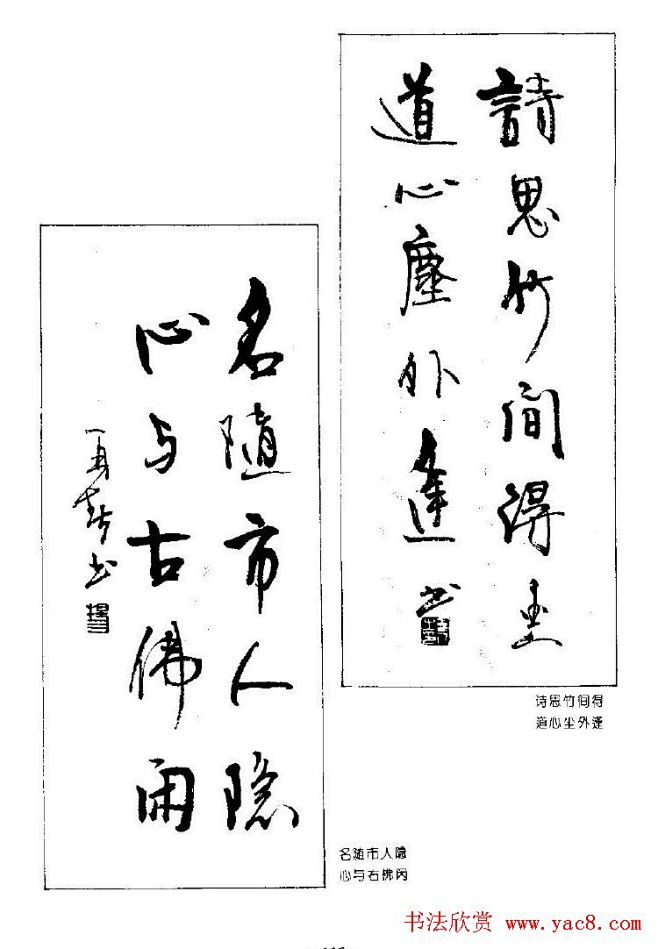 詩思竹间得
道心塵外逢 书
诗思竹间得
道心尘外逢
名随市人隐
心与古佛闲
书
名随市人隐
心与古佛闲
书法欣赏 www.yac8.com